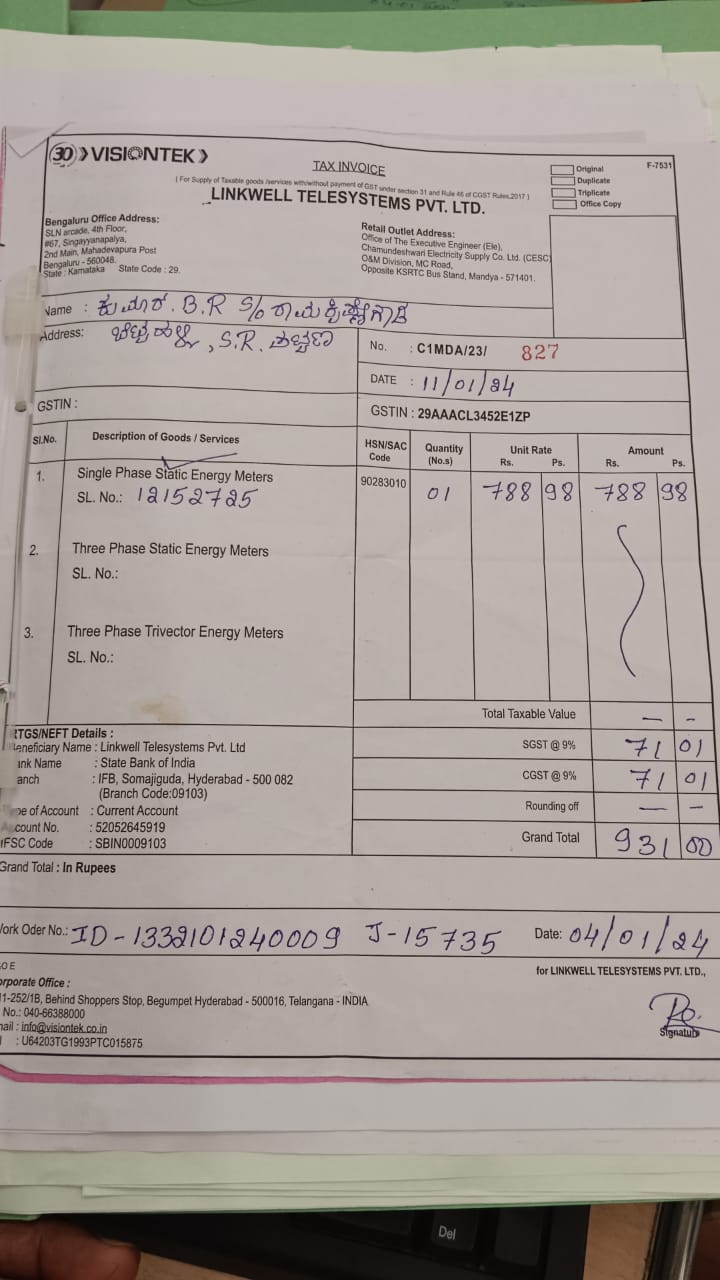 30 VISIONTEK
TAX INVOICE
F-7531
( For Supply of Taxable goods /services with/without payment of GST under section 31 and Rule 46 of CGST Rules,2017 )
Original
Duplicate
Triplicate
Office Copy
LINKWELL TELESYSTEMS PVT. LTD.
Bengaluru Office Address:
SLN arcade, 4th Floor,
#67, Singayyanapalya,
2nd Main, Mahadevapura Post
Bengaluru - 560048.
State : Karnataka State Code : 29.
Retail Outlet Address:
Office of The Executive Engineer (Ele),
Chamundeshwari Electricity Supply Co. Ltd. (CESC)
O&M Division, MC Road,
Opposite KSRTC Bus Stand, Mandya - 571401.
Name : ಕುಮಾರ. B.R S/o ರಾಮಕೃಷ್ಣೇಗೌಡ
Address: S.R. ಪಟ್ಟಣ
No. : C1MDA/23/ 827
DATE : 11/01/24
GSTIN :
GSTIN : 29AAACL3452E1ZP
Sl.No. Description of Goods / Services HSN/SAC Code Quantity (No.s) Unit Rate Rs. Ps. Amount Rs. Ps.
1. Single Phase Static Energy Meters 90283010 01 788 98 788 98
SL. No.: 12152725
2. Three Phase Static Energy Meters
SL. No.:
3. Three Phase Trivector Energy Meters
SL. No.:
Total Taxable Value — -
RTGS/NEFT Details :
Beneficiary Name : Linkwell Telesystems Pvt. Ltd
SGST @ 9% 71 01
ank Name : State Bank of India
anch : IFB, Somajiguda, Hyderabad - 500 082
(Branch Code:09103)
CGST @ 9% 71 01
pe of Account : Current Account
Rounding off — -
Account No. : 52052645919
IFSC Code : SBIN0009103
Grand Total 931 00
Grand Total : In Rupees
Work Oder No.: ID-1332101240009 J-15735 Date: 04/01/24
OE
for LINKWELL TELESYSTEMS PVT. LTD.,
orporate Office :
11-252/1B, Behind Shoppers Stop, Begumpet Hyderabad - 500016, Telangana - INDIA
No.: 040-66388000
mail : info@visiontek.co.in
: U64203TG1993PTC015875
Signatu
Del